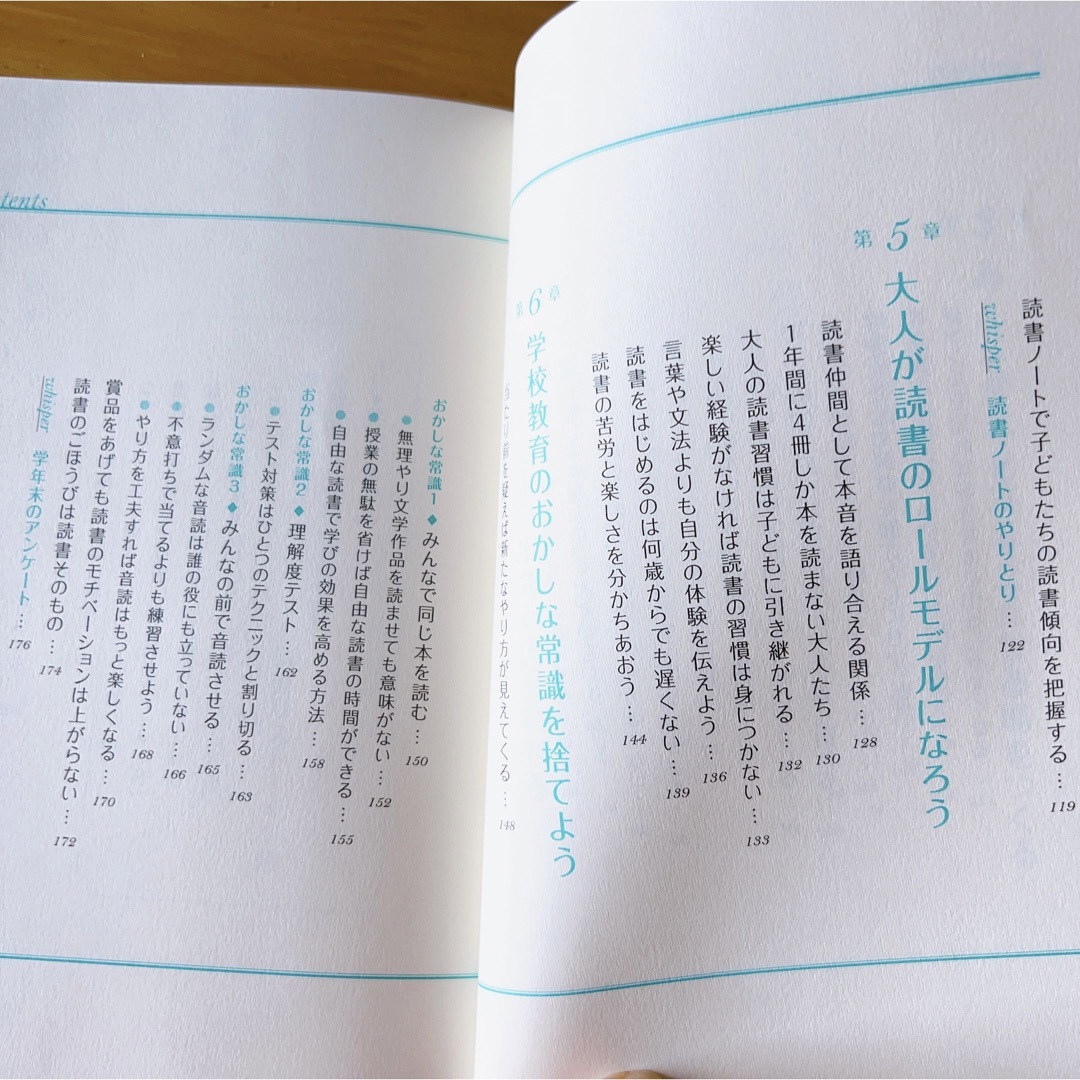 読書ノートで子どもたちの読書傾向を把握する … 119
whisper 読書ノートのやりとり … 122
第5章 大人が読書のロールモデルになろう
読書仲間として本音を語り合える関係 … 128
1年間に4冊しか本を読まない大人たち … 130
大人の読書習慣は子どもに引き継がれる … 132
楽しい経験がなければ読書の習慣は身につかない … 133
言葉や文法よりも自分の体験を伝えよう … 136
読書をはじめるのは何歳からでも遅くない … 139
読書の苦労と楽しさを分かちあおう … 144
第6章 学校教育のおかしな常識を捨てよう
当たり前を疑えば新たなやり方が見えてくる … 148
tents
おかしな常識1 ◆ みんなで同じ本を読む … 150
● 無理やり文学作品を読ませても意味がない … 152
● 授業の無駄を省けば自由な読書の時間ができる … 155
● 自由な読書で学びの効果を高める方法 … 158
おかしな常識2 ◆ 理解度テスト … 162
● テスト対策はひとつのテクニックと割り切る … 163
おかしな常識3 ◆ みんなの前で音読させる … 165
● ランダムな音読は誰の役にも立っていない … 166
● 不意打ちで当てるよりも練習させよう … 168
● やり方を工夫すれば音読はもっと楽しくなる … 170
賞品をあげても読書のモチベーションは上がらない … 172
読書のごほうびは読書そのもの … 174
whisper 学年末のアンケート … 176